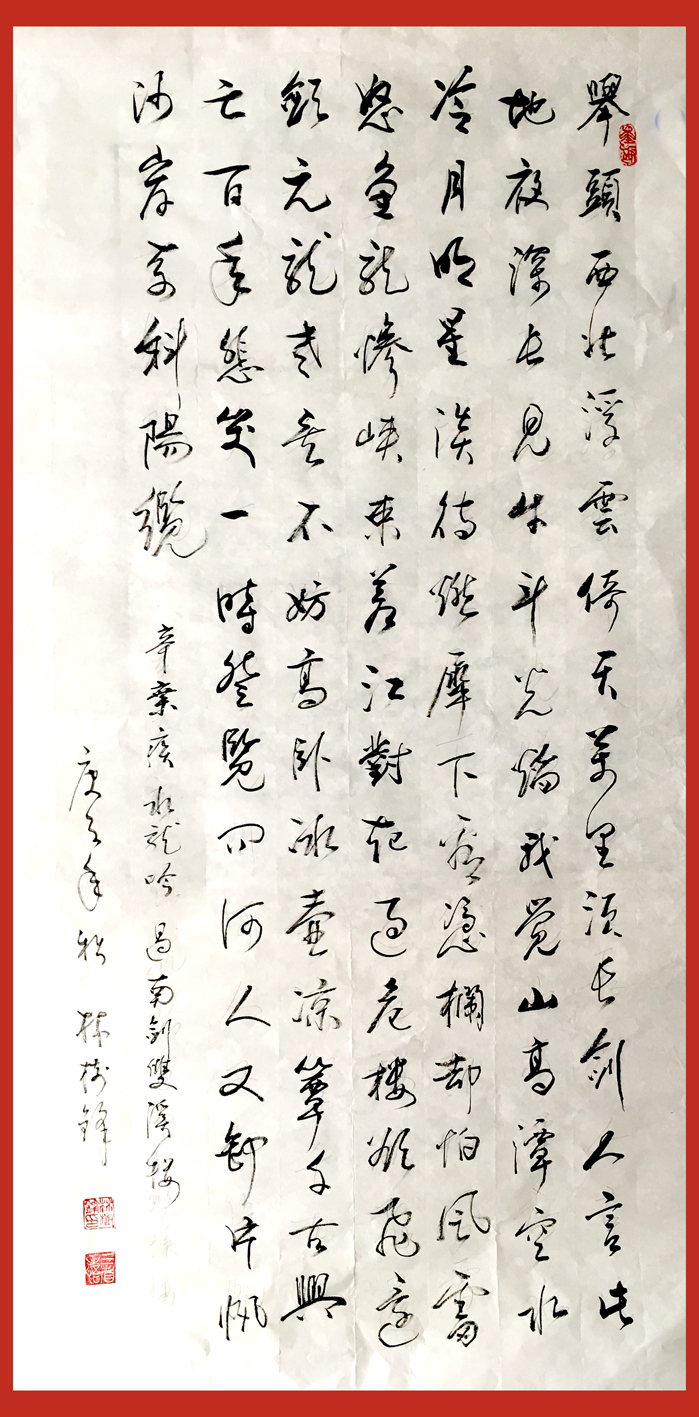 舉頭西北浮雲倚天萬里須長劍人言此
地夜深長見牛斗光焰我覺山高潭空水
冷月明星淡待燃犀下看憑欄却怕風雷
怒魚龍慘峽束蒼江對起過危樓欲飛還
歛元龍老矣不妨高臥冰壺涼簟千古興
亡百年悲笑一時登覽問何人又卸片帆
沙岸系斜陽纜
辛棄疾水龍吟 過南劍雙溪樓
庚子年秋 林樹鋒